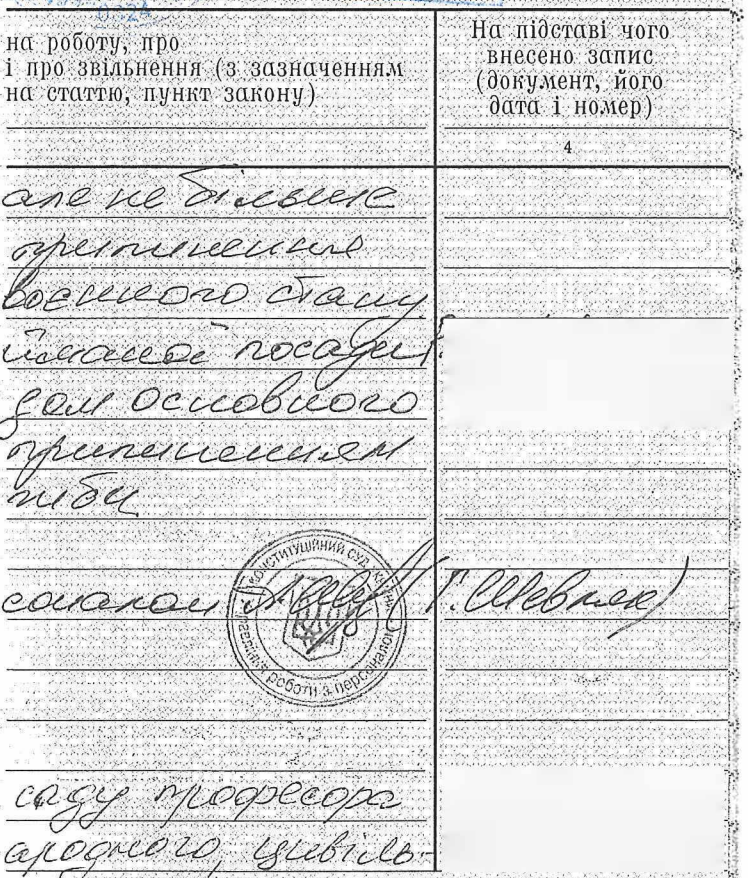 на роботу, про
і про звільнення (з зазначенням
на статтю, пункт закону)
На підставі чого
внесено запис
(документ, його
дата і номер)
4
але не більше
припинення
воєнного стану
йманої посади
дом основного
припиненням
жби
соналом (Г. Шевляк)
КОНСТИТУЦІЙНИЙ СУД УКРАЇНИ
роботи з персоналом
саду професора
ародного, цивіль-